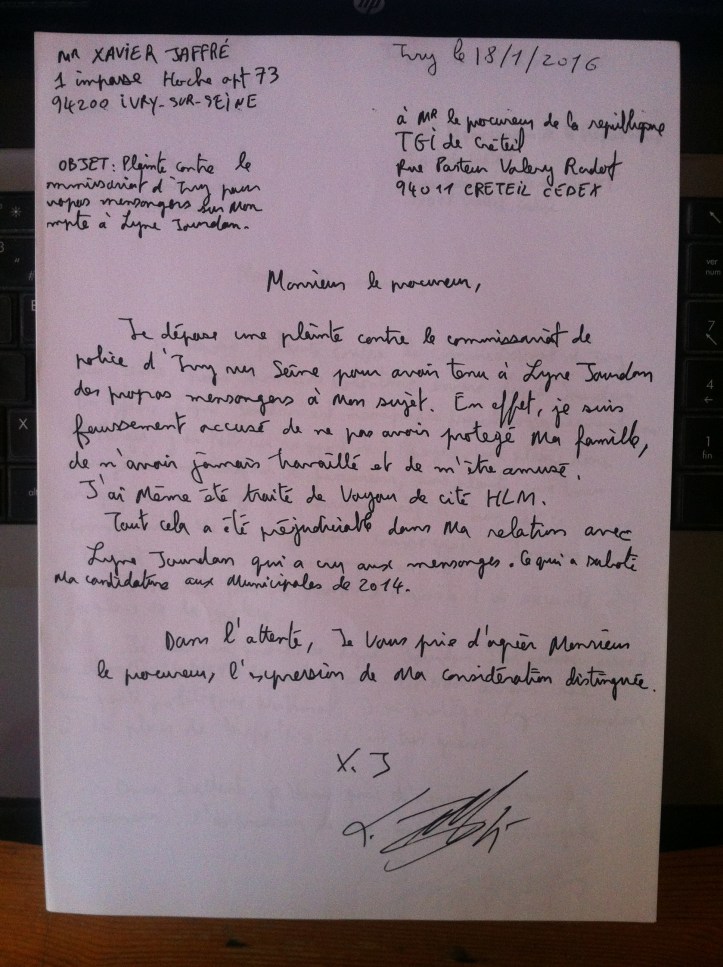 MR XAVIER JAFFRÉ
1 impasse Hoche apt 73
94200 IVRY-SUR-SEINE
Ivry le 18/1/2016
à MR le procureur de la république
TGI de Créteil
Rue Pasteur Valery Radot
94011 CRETEIL CEDEX
OBJET: Plainte contre le
commissariat d'Ivry pour
propos mensongers sur mon
compte à Lyne Jourdan.
Monsieur le procureur,
Je dépose une plainte contre le commissariat de
police d'Ivry sur Seine pour avoir tenu à Lyne Jourdan
des propos mensongers à mon sujet. En effet, je suis
faussement accusé de ne pas avoir protegé ma famille,
de n'avoir jamais travaillé et de m'être amusé.
J'ai même été traité de voyou de cité HLM.
Tout cela a été préjudiciable dans ma relation avec
Lyne Jourdan qui a cru aux mensonges. Ce qui a saboté
ma candidature aux municipales de 2014.
Dans l'attente, Je vous prie d'agréer Monsieur
le procureur, l'expression de ma considération distinguée.
X. J